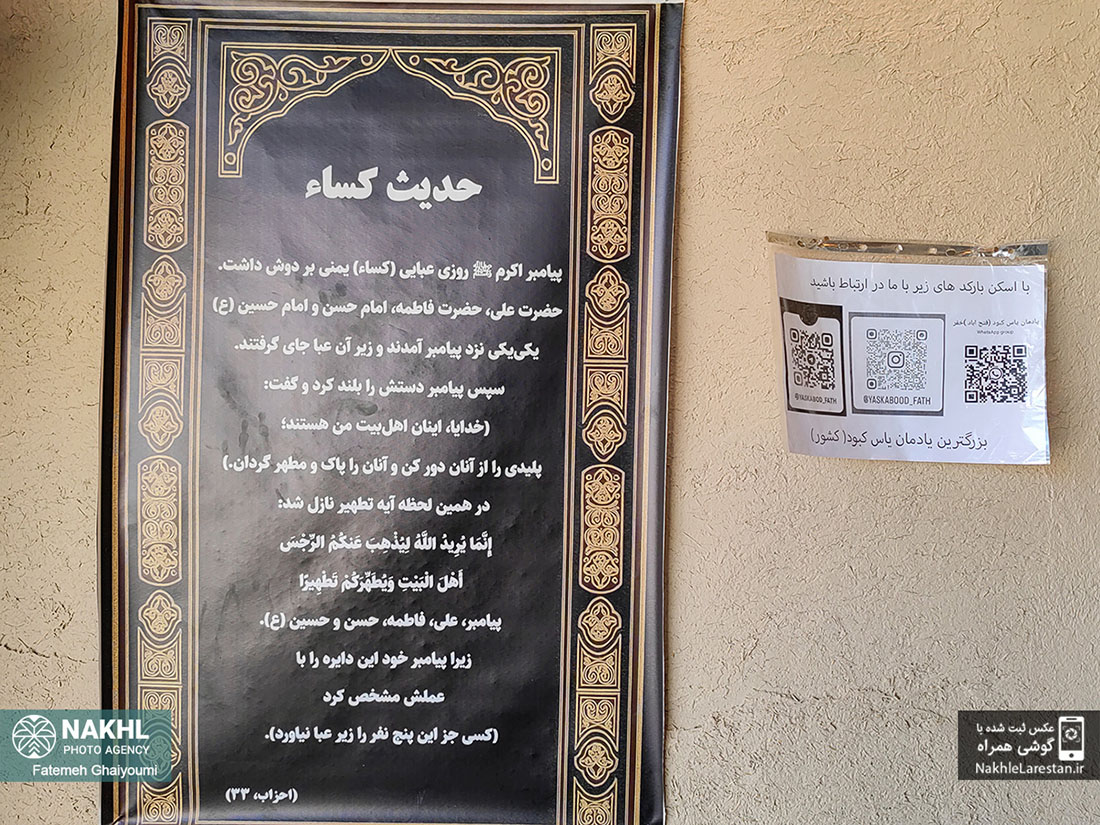 حدیث کساء
پیامبر اکرم ﷺ روزی عبایی (کساء) یمنی بر دوش داشت.
حضرت علی، حضرت فاطمه، امام حسن و امام حسین (ع)
یکی‌یکی نزد پیامبر آمدند و زیر آن عبا جای گرفتند.
سپس پیامبر دستش را بلند کرد و گفت:
(خدایا، اینان اهل‌بیت من هستند؛
پلیدی را از آنان دور کن و آنان را پاک و مطهر گردان.)
در همین لحظه آیه تطهیر نازل شد:
إِنَّمَا يُرِيدُ اللَّهُ لِيُذْهِبَ عَنكُمُ الرِّجْسَ
أَهْلَ الْبَيْتِ وَيُطَهِّرَكُمْ تَطْهِيرًا
پیامبر، علی، فاطمه، حسن و حسین (ع).
زیرا پیامبر خود این دایره را با
عملش مشخص کرد
(کسی جز این پنج نفر را زیر عبا نیاورد).
(احزاب، ۳۳)
با اسکن بارکد های زیر با ما در ارتباط باشید
یادمان یاس کبود (فتح آباد )خفر
WhatsApp group
@YASKABOOD_FATH
@YASKABOD_FATH
بزرگترین یادمان یاس کبود( کشور)
NAKHL
PHOTO AGENCY
Fatemeh Ghaiyoumi
عکس ثبت شده با
گوشی همراه
NakhleLarestan.ir